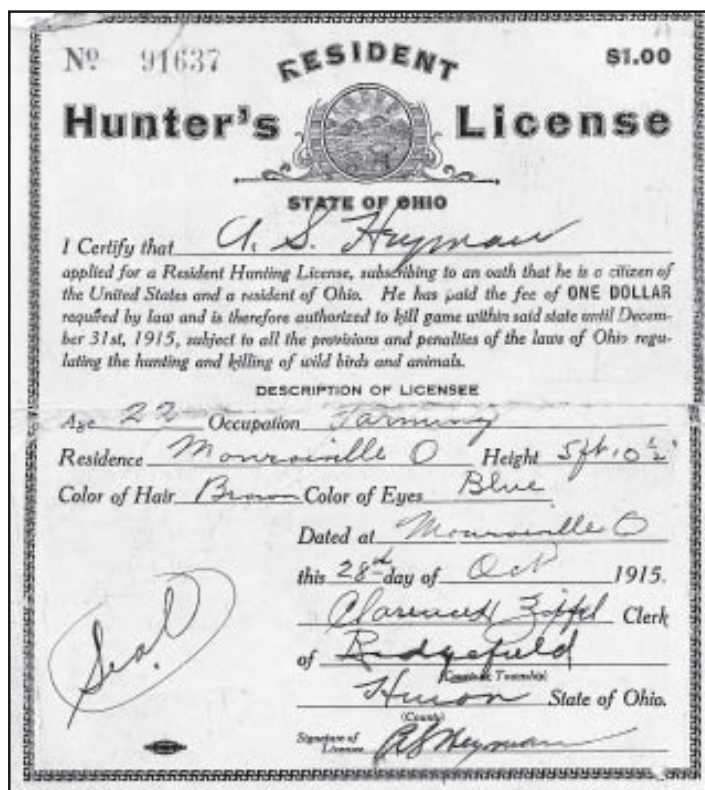 Nº 91637 RESIDENT $1.00
Hunter's License
STATE OF OHIO
I Certify that A. S. Heyman
applied for a Resident Hunting License, subscribing to an oath that he is a citizen of
the United States and a resident of Ohio. He has paid the fee of ONE DOLLAR
required by law and is therefore authorized to kill game within said state until Decem-
ber 31st, 1915, subject to all the provisions and penalties of the laws of Ohio regu-
lating the hunting and killing of wild birds and animals.
DESCRIPTION OF LICENSEE
Age 22 Occupation Farming
Residence Monroeville O Height 5 ft. 10 ½"
Color of Hair Brown Color of Eyes Blue
Dated at Monroeville O
this 28th day of Oct 1915.
Clarence Zipfel Clerk
of Ridgefield
Township)
Huron State of Ohio.
(County)
Signature of
Licensee A S Heyman
Seal